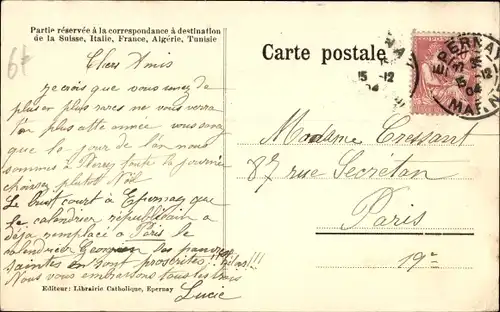 Partie réservée à la correspondance à destination
de la Suisse, Italie, France, Algérie, Tunisie
Carte postale
6f
EPERNAY
15 -12
04
MARNE
Chers Amis
je crois que vous vous de
plus en plus rares ne vous verra
t'on plus cette année vous
le jour de l'an nous
sommes à toute la journée
choisissez plutôt Noël
Le bruit court à Epernay que
le calendrier républicain a
déjà remplacé à Paris le
calendrier Gregorien les pauvres
saintes en sont proscrites ! hélas!!!
Nous vous embrassons tous les trois
Lucie
Editeur: Librairie Catholique, Epernay
Madame Cressant
87 rue Secrétan
Paris
19e